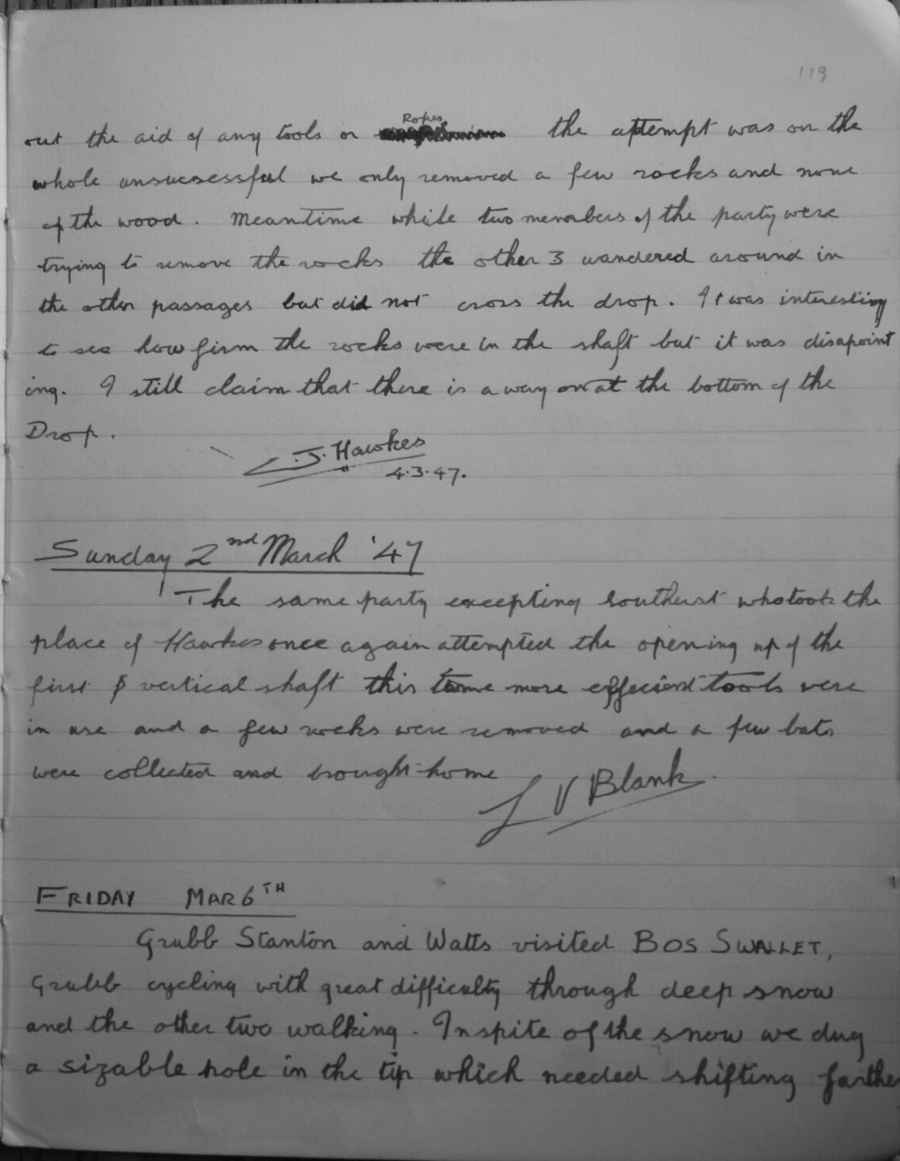 119
out the aid of any tools or Ropes the attempt was on the
whole unsucessful we only removed a few rocks and none
of the wood. Meantime while two members of the party were
trying to remove the rocks the other 3 wandered around in
the other passages but did not cross the drop. It was interesting
to see how firm the rocks were in the shaft but it was disapoint
ing. I still claim that there is a way on at the bottom of the
Drop.
C.J. Hawkes
4.3.47.
Sunday 2nd March '47
The same party excepting who took the
place of Hawkes once again attempted the opening up of the
first vertical shaft this time more effecient tools were
in use and a few rocks were removed and a few bats
were collected and brought home
L V Blank.
FRIDAY MAR 6TH
Grubb Stanton and Watts visited BOS SWALLET,
Grubb cycling with great difficulty through deep snow
and the other two walking. Inspite of the snow we dug
a sizable hole in the tip which needed shifting farther